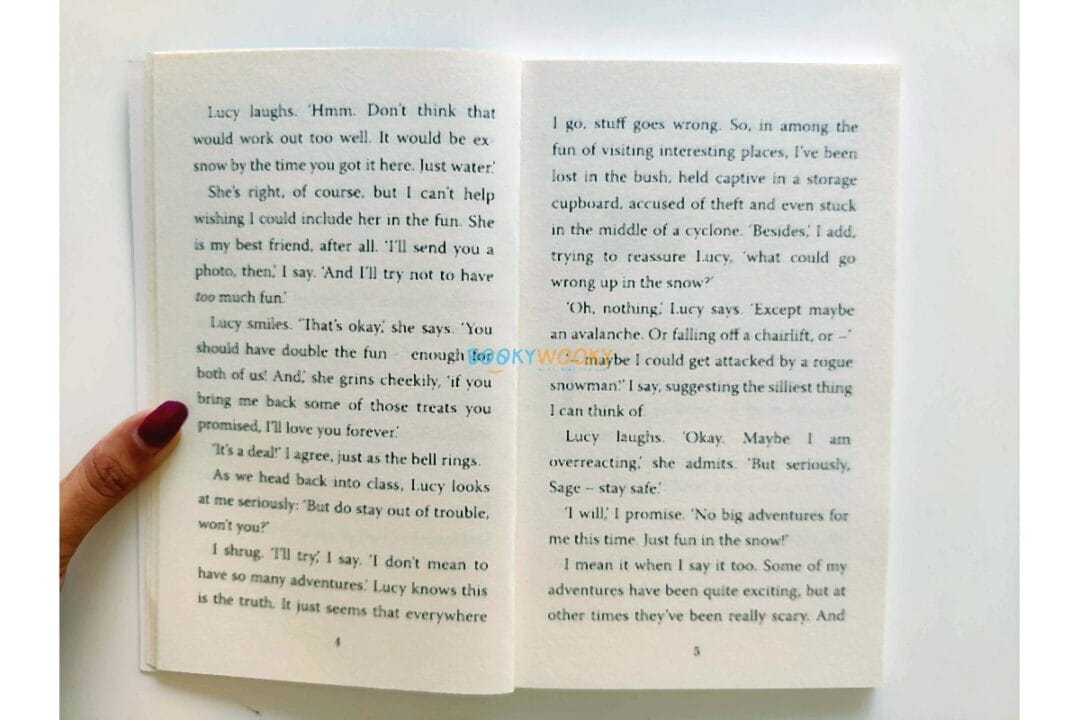 Lucy laughs. ‘Hmm. Don’t think that
would work out too well. It would be ex-
snow by the time you got it here. Just water.’
She’s right, of course, but I can’t help
wishing I could include her in the fun. She
is my best friend, after all. ‘I’ll send you a
photo, then,’ I say. ‘And I’ll try not to have
too much fun.’
Lucy smiles. ‘That’s okay,’ she says. ‘You
should have double the fun – enough for
both of us! And,’ she grins cheekily, ‘if you
bring me back some of those treats you
promised, I’ll love you forever.’
‘It’s a deal!’ I agree, just as the bell rings.
As we head back into class, Lucy looks
at me seriously: ‘But do stay out of trouble,
won’t you?’
I shrug. ‘I’ll try,’ I say. ‘I don’t mean to
have so many adventures.’ Lucy knows this
is the truth. It just seems that everywhere
4
I go, stuff goes wrong. So, in among the
fun of visiting interesting places, I’ve been
lost in the bush, held captive in a storage
cupboard, accused of theft and even stuck
in the middle of a cyclone. ‘Besides,’ I add,
trying to reassure Lucy, ‘what could go
wrong up in the snow?’
‘Oh, nothing,’ Lucy says. ‘Except maybe
an avalanche. Or falling off a chairlift, or –’
maybe I could get attacked by a rogue
snowman!’ I say, suggesting the silliest thing
I can think of.
Lucy laughs. ‘Okay. Maybe I am
overreacting,’ she admits. ‘But seriously,
Sage – stay safe.’
‘I will,’ I promise. ‘No big adventures for
me this time. Just fun in the snow!’
I mean it when I say it too. Some of my
adventures have been quite exciting, but at
other times they’ve been really scary. And
5
BOOKYWOOKY